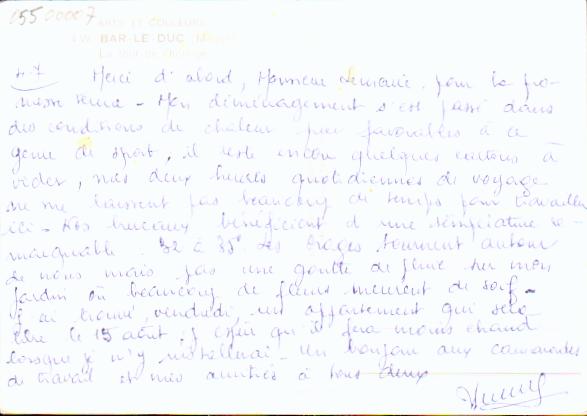 05500007
ARTS ET COULEURS
BAR-LE-DUC (Meuse)
La Tour de l'Horloge
4-7 Merci d'abord, Monsieur Lemarié, pour la pro-
messe tenue - Mon déménagement s'est passé dans
des conditions de chaleur peu favorables à ce
genre de sport, il reste encore quelques cartons à
vider, mes deux heures quotidiennes de voyage
ne me laissent pas beaucoup de temps pour travailler
ici - Nos bureaux bénéficient d'une température re-
marquable 32 à 35° les orages tournent autour
de nous mais pas une goutte de pluie sur mon
jardin où beaucoup de fleurs meurent de soif -
J'ai trouvé, vendredi, un appartement qui sera
libre le 15 août, j'espère qu'il fera moins chaud
lorsque je m'y installerai - Un bonjour aux camarades
de travail et mes amitiés à tous deux